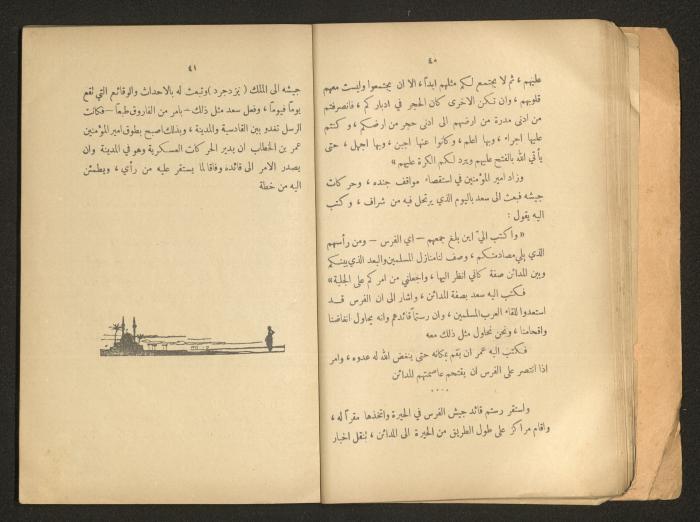 ٤٠
عليهم ، ثم لا يجتمع لكم مثلهم ابداً ، الا ان يجتمعوا وليست معهم
قلوبهم ، وان تكن الاخرى كان الحجر في ادباركم ، فانصرفتم
من ادنى مدرة من ارضهم الى ادنى حجر من ارضكم ، وكنتم
عليها اجراء ، وبها اعلم ، وكانوا عنها اجبن ، وبها اجهل ، حتى
يأتي الله بالفتح عليهم ويرد لكم الكرة عليهم »
وزاد امير المؤمنين في استقصاء مواقف جنده ، وحركات
جيشه فبعث الى سعد باليوم الذي يرتحل فيه من شراف ، وكتب
اليه يقول :
« واكتب اليّ اين بلغ جمعهم – اي الفرس – ومن رأسهم
الذي يلي مصادمتكم ، وصف لنا منازل المسلمين والبعد الذي بينكم
وبين المدائن صفة كأني انظر اليها ، واجعلني من امركم على الجلية »
فكتب اليه سعد بصفة المدائن ، واشار الى ان الفرس قد
استعدوا للقاء العرب المسلمين ، وان رستما قائدهم وانه يحاول انغاضنا
واقحامنا ، ونحن نحاول مثل ذلك معه
فكتب اليه عمر ان يقم بمكانه حتى ينغض الله له عدوه ، وامر
اذا انتصر على الفرس ان يقتحم عاصمتهم المدائن
....
واستقر رستم قائد جيش الفرس في الحيرة واتخذها مقراً له ،
واقام مراكز على طول الطريق من الحيرة الى المدائن ، لنقل اخبار
٤١
جيشه الى الملك ( يزدجرد ) وتبعث له بالاحداث والوقائع التي تقع
يوماً فيوماً ، وفعل سعد مثل ذلك – بامر من الفاروق طبعاً – فكانت
الرسل تغدو بين القادسية والمدينة ، وبذلك اصبح بطوق امير المؤمنين
عمر بن الخطاب ان يدير الحركات العسكرية وهو في المدينة وان
يصدر الامر الى قائده وفاقاً لما يستقر عليه من رأي ، ويطمئن
اليه من خطة